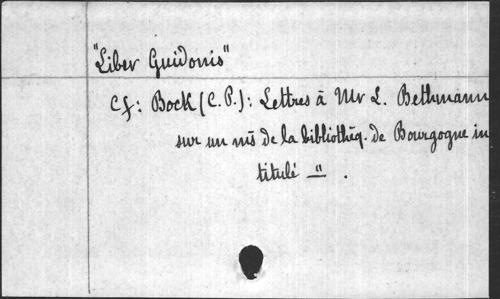 "Liber Guidonis"
Cf: Bock (C.P.): Lettres à Mr L. Bethmann
sur un ms de la bibliothèq. de Bourgogne in
titulé — " .